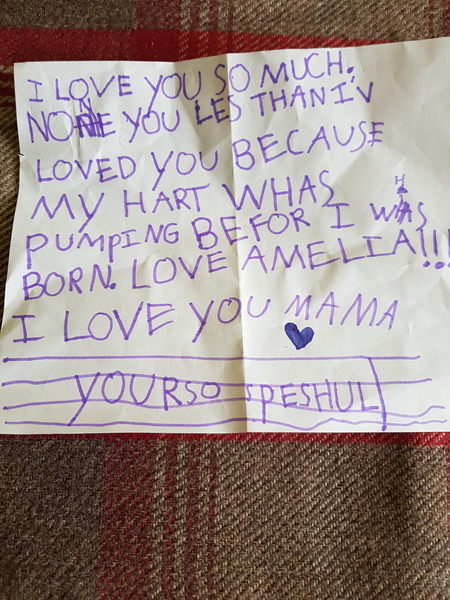 I LOVE YOU SO MUCH.
NONE YOU LES THAN I'V
LOVED YOU BECAUSE
MY HART WHAS
PUMPING BEFOR I WHAS
BORN. LOVE AMELIA!!!
I LOVE YOU MAMA
YOURSO SPESHUL